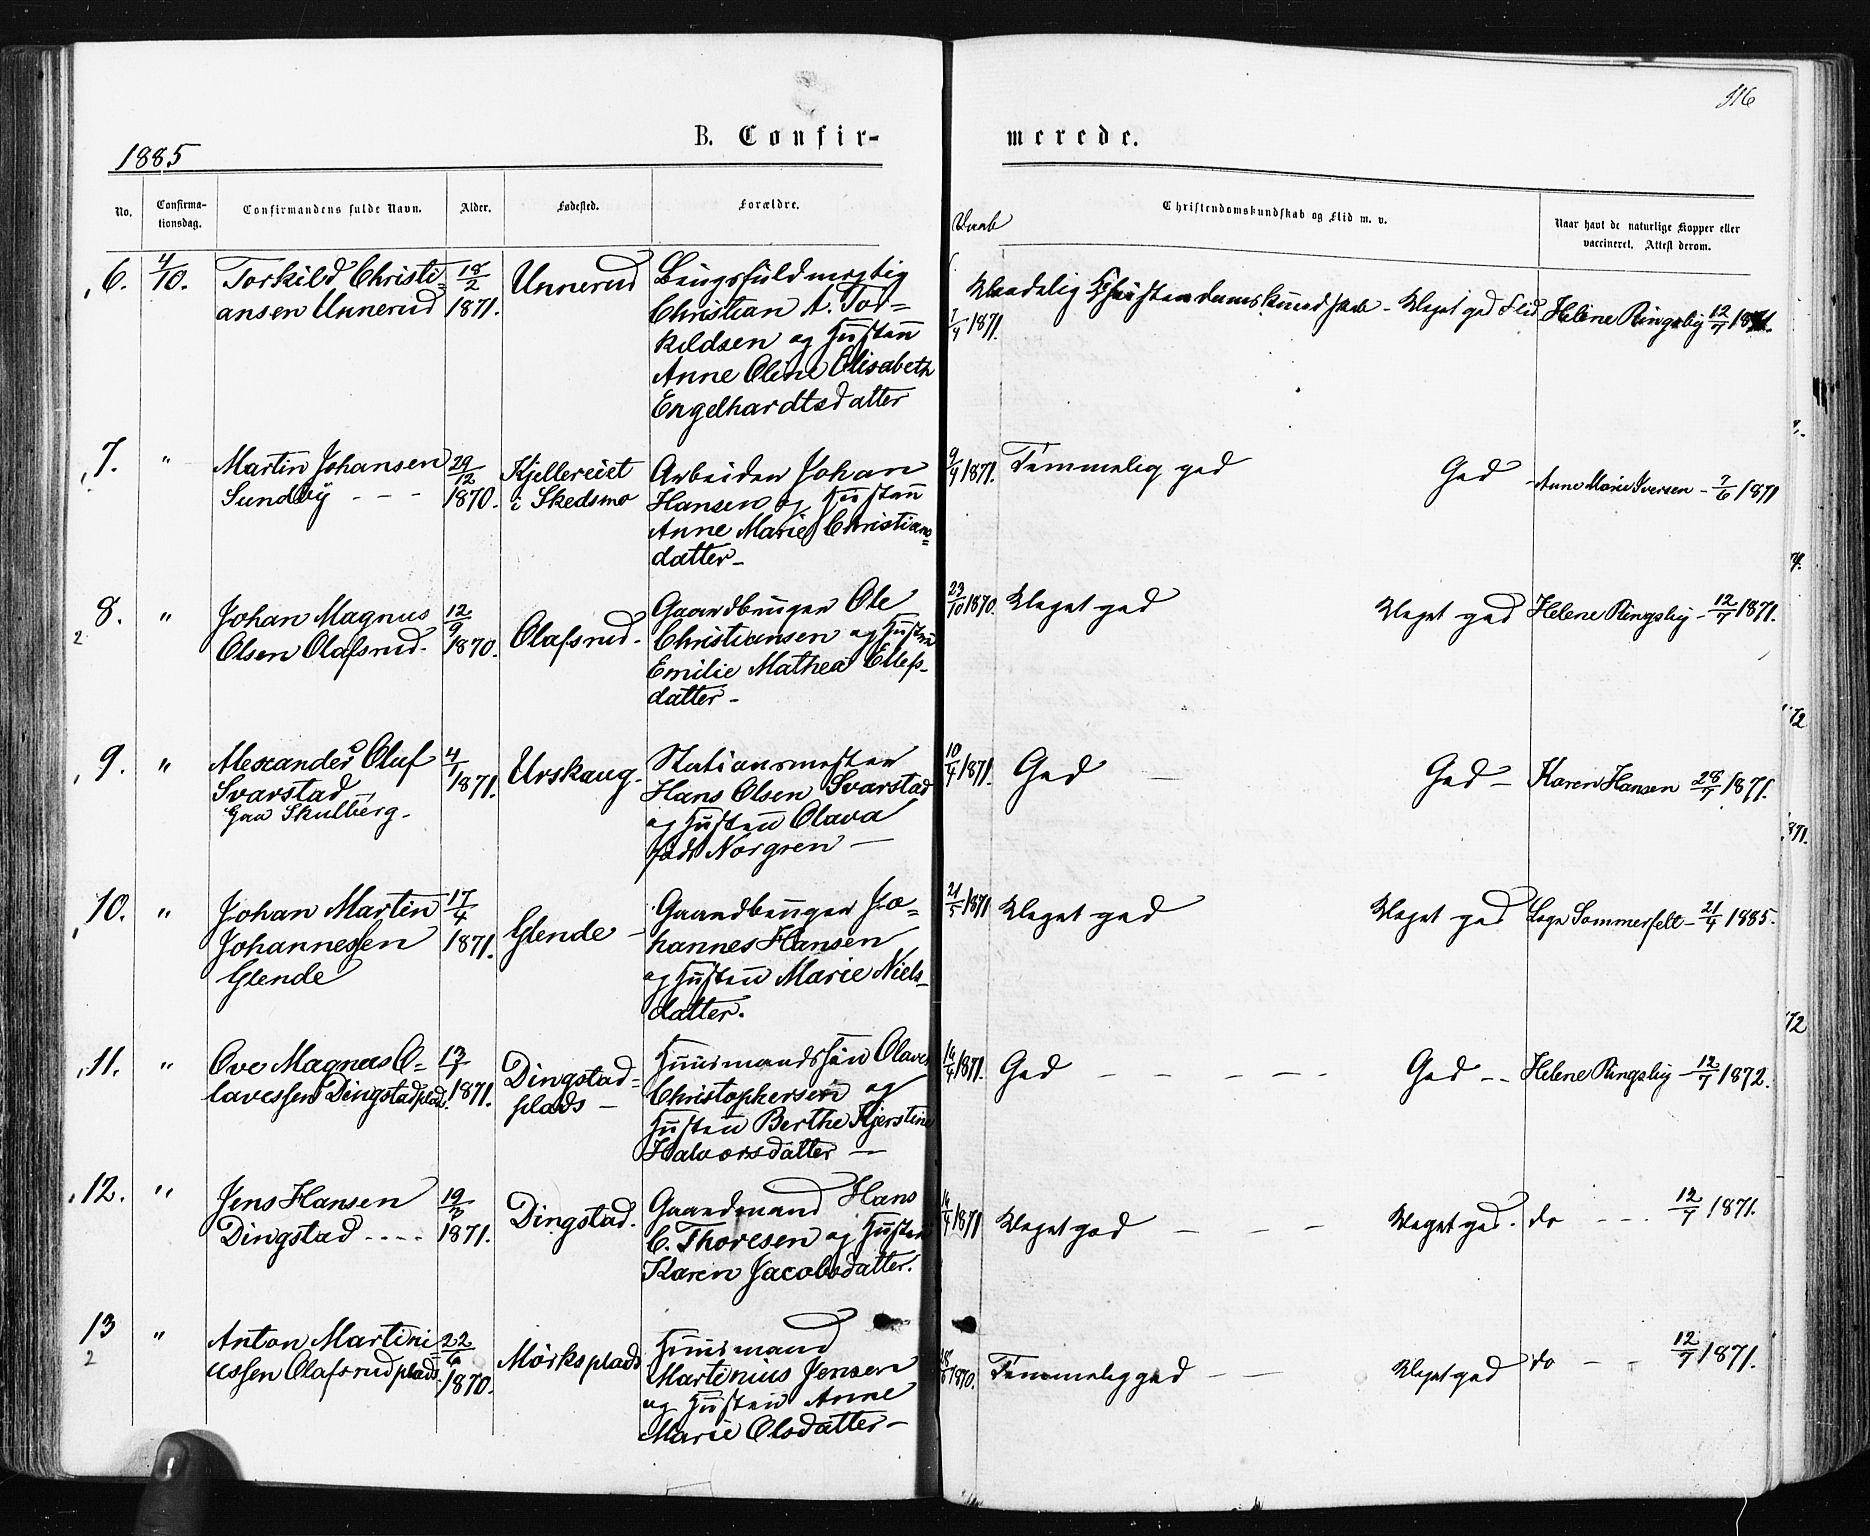 116
B. Confir-
merede.
1885
No.
Confirma-
tionsdag.
Confirmandens fulde Navn.
Alder.
Fødested.
Forældre.
Daab
Christendomskundskab og Flid m. v.
Naar havt de naturlige Kopper eller
vaccineret. Attest derom.
6. 4/10. Torkild Christi- 18/2 Unnerud
ansen Unnerud 1871.
Christian A. Tor-
kildsen og Hustru
Anne Oline Elisabeth
Engelhardtsdatter
7/4 1871. Christendomskundskab - Meget god Flid Helene Ringsby 12/7 1871.
7. " Martin Johansen 29/12 Kjellereiet Arbeider Johan
Sundby - - - 1870. i Skedsmo Hansen og Hustru
Anne Marie Christians-
datter -
9/4 1871. Temmelig god God - Anne Marie Iversen - 7/6 1871
8. " Johan Magnus 12/9 Olafsrud. Gaardbruger Ole
Olsen Olafsrud. 1870. Christiansen og Hustru
Emilie Mathea Ellefs-
datter -
23/10 1870. Meget god Meget god Helene Ringsby - 12/7 1871.
9. " Alexander Oluf 4/1 Urskaug. Stationsmester
Svarstad 1871. Hans Olsen Svarstad
Gaa Skulberg. og Hustru Olava
født Norgren -
10/4 1871. God - God - Karen Hansen 28/7 1871.
10. " Johan Martin 17/4 Glende - Gaardbruger Jo-
Johannessen 1871. hannes Hansen
Glende og Hustru Marie Niels-
datter.
21/5 1871 Meget god Meget god Læge Sommerfelt - 21/4 1885.
11. " Ove Magnus O- 13/1 Dingstad- Huusmandssøn Olaves
lavessen Dingstadplad. 1871. plads - Christophersen og
Hustru Berthe Kjerstine
Halvorsdatter -
14/4 1871. God - - - - - God - - Helene Ringsby - 12/7 1872.
12. " Jens Hansen 19/3 Dingstad. Gaardmand Hans
Dingstad - - - - 1871. C. Thoresen og Hustru
Karen Jacobsdatter.
14/4 1871 Meget god - - - Meget god. do - - - 12/7 1871.
13 " Anton Martini- 22/6 Mørksplads Huusmand
ussen Olafsrudplads 1870. Martinius Jensen
og Hustru Anne
Marie Olsdatter -
1870. Temmelig god - - Meget god do - - 12/7 1871.